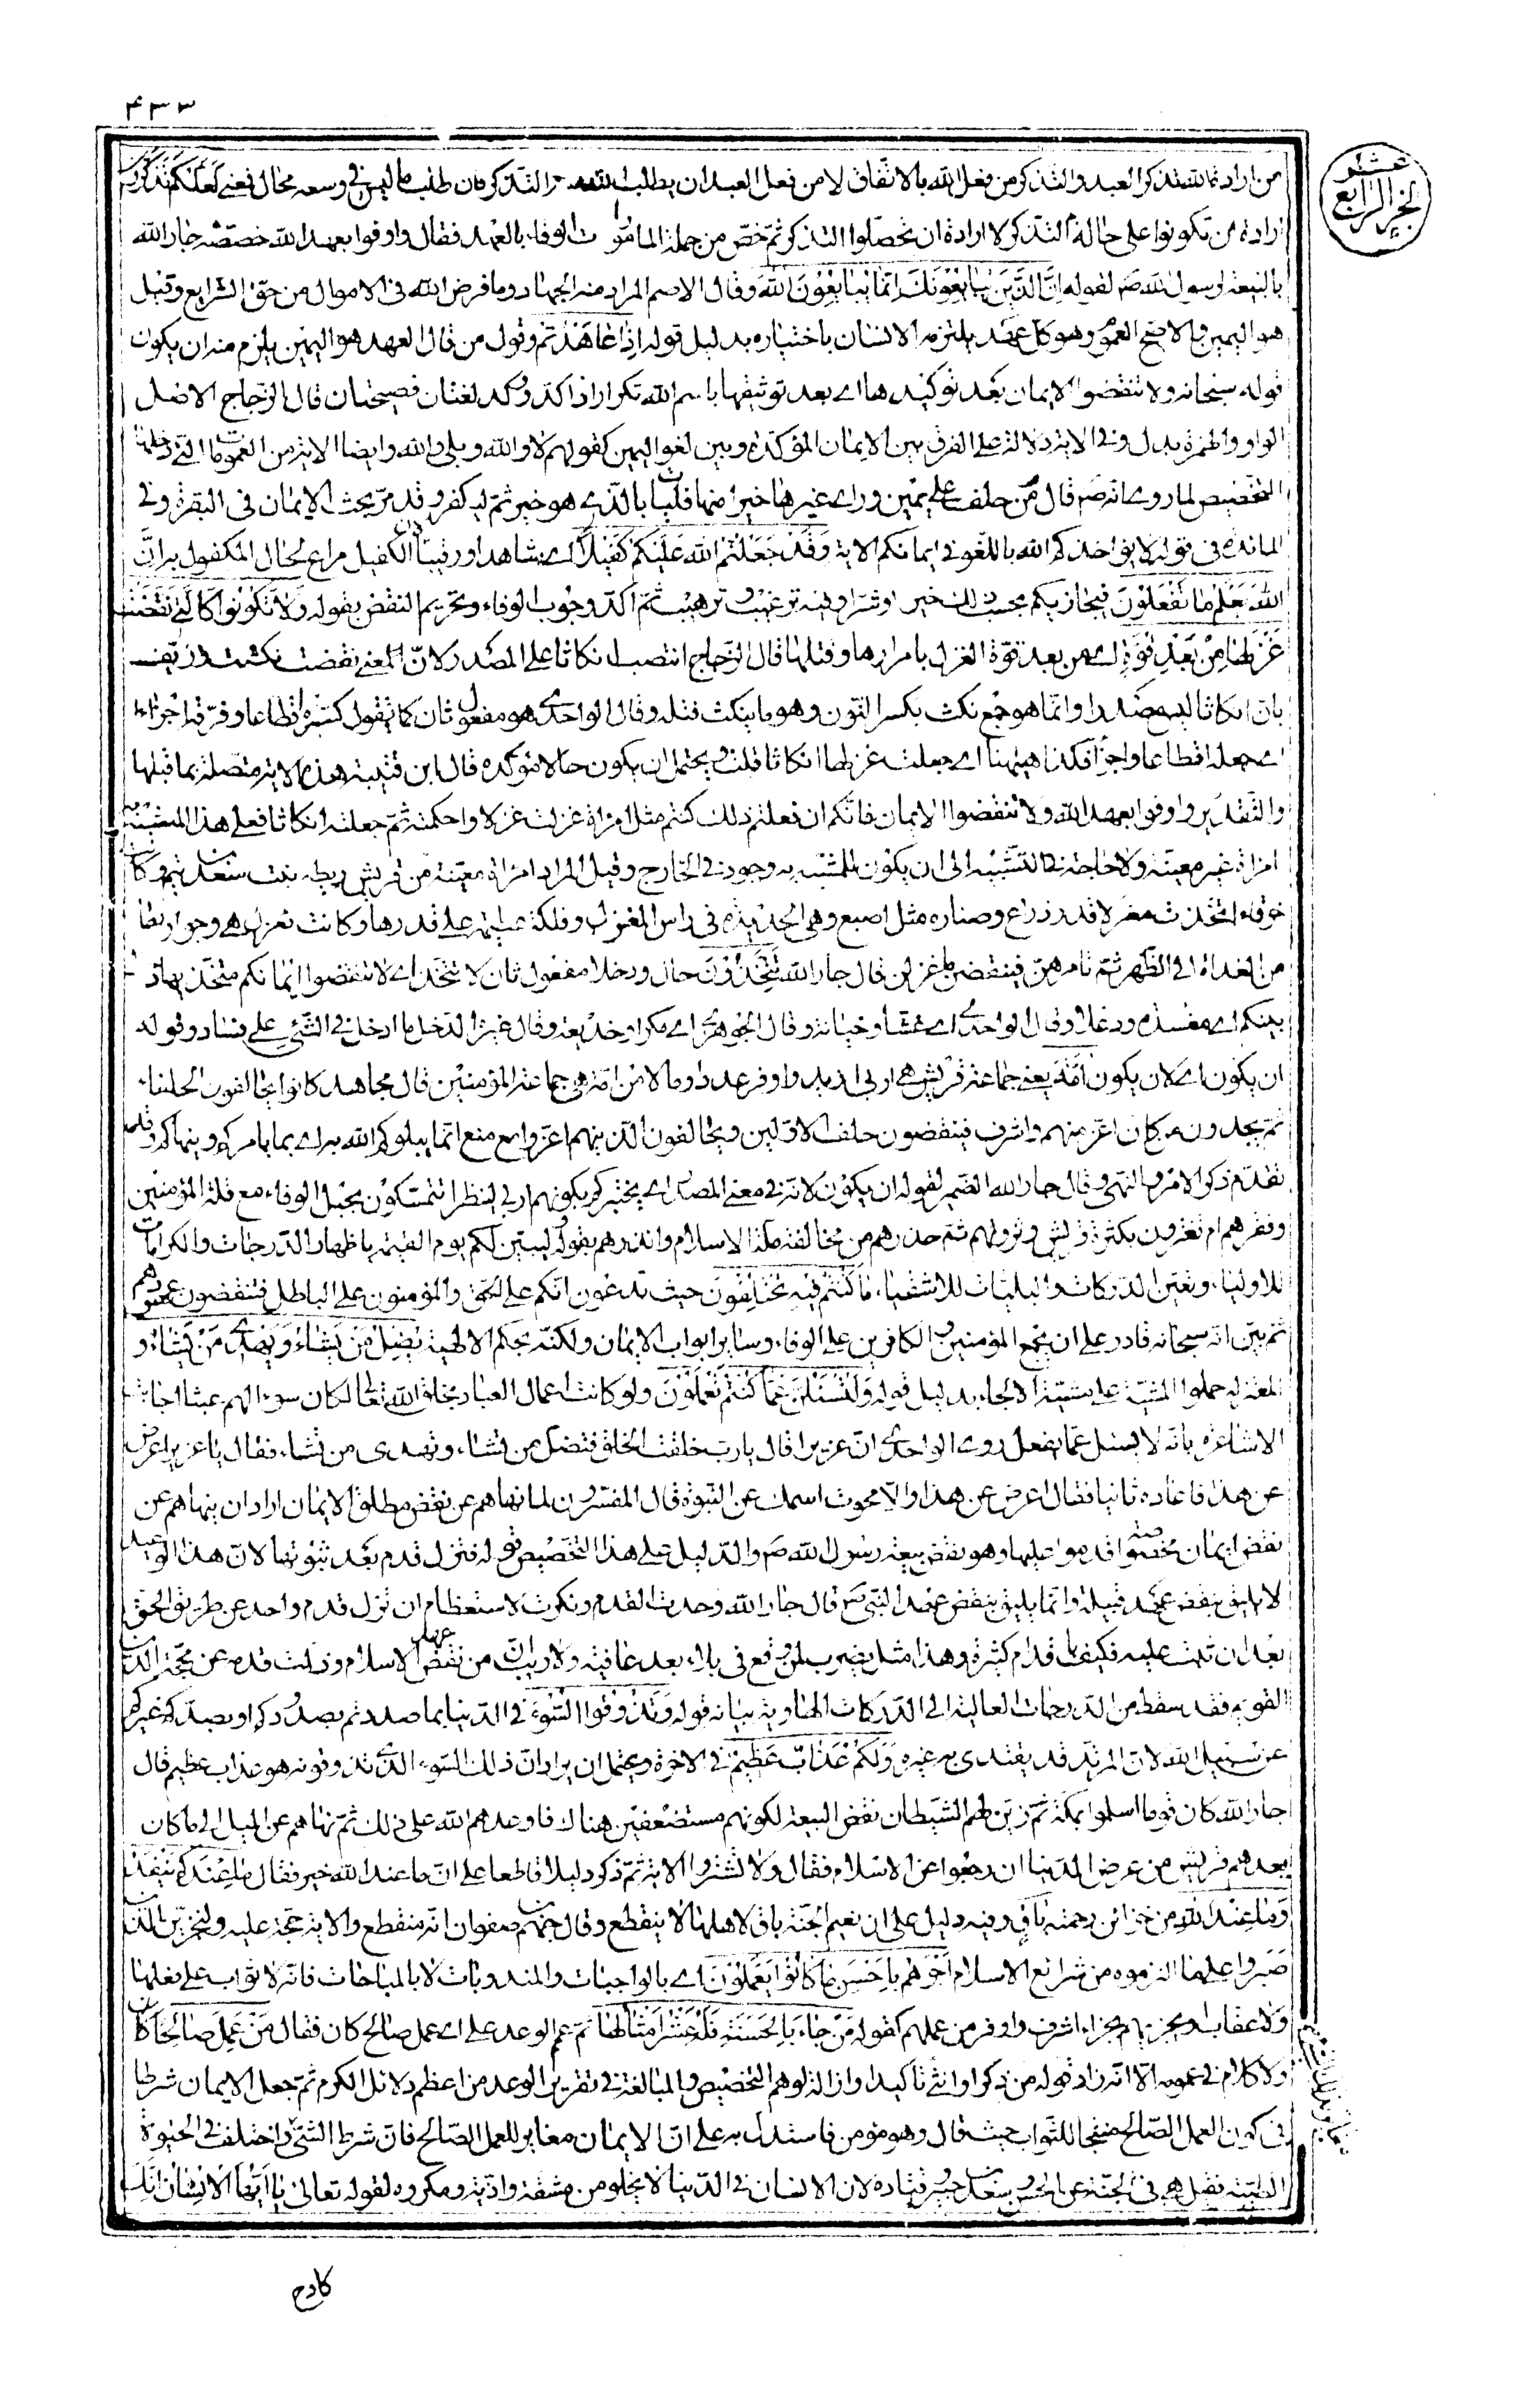 ٤٣٣
الجزء الرابع عشر
من اراد منا لله تذكر العبد والتذكر من فعل الله بالاتفاق لا من فعل العبد ان يطلب الله من التذكر فان طلب ما ليس في وسعه محال فمعنى لعلكم تذكرون
ارادة من تكونوا على حالة التذكر لا ارادة ان تحصلوا التذكر ثم خص من جملة المامورات الوفاء بالعهد فقال واوفوا بعهد الله خصصه جار الله
بالبيعة لرسول الله ص لقوله اِنَّ الَّذِينَ يُبايِعُونَكَ اِنَّما يُبايِعُونَ اللّٰهَ وقال الاصم المراد منه الجهاد وما فرض الله في الاموال من حق الشرايع وقيل
هو اليمين والاصح العموم وهو كل عهد يلتزمه الانسان باختياره بدليل قوله اِذا عاهَدْتُم وقول من قال العهد هو اليمين يلزم منه ان يكون
قوله سبحانه ولا تنقضوا الايمان بعد توكيدها اى بعد توثيقها باسم الله تكرارا اكد ووكد لغتان فصيحتان قال الزجاج الاصل
الواو والهمزة بدل وفي الاية دلالة على الفرق بين الايمان المؤكدة وبين لغو اليمين كقولهم لا والله وبلى والله وايضا الاية من العمومات التي دخلها
التخصيص لما روى انه ص قال من حلف على يمين وراى غيرها خيرا منها فليات بالذي هو خير ثم ليكفر وقد مر بحث الايمان في البقرة وفي
المائدة في قوله لا يؤاخذكم الله باللغو في ايمانكم الاية وَقَدْ جَعَلْتُمُ اللّٰهَ عَلَيْكُمْ كَفِيلاً اى شاهدا ورقيبا لان الكفيل مراع لحال المكفول به اِنَّ
اللّٰهَ يَعْلَمُ ما تَفْعَلُونَ فيجازيكم بحسب ذلك خيرا وشرا وفيه ترغيب وترهيب ثم اكد وجوب الوفاء وتحريم النقض بقوله وَلا تَكُونُوا كَالَّتِي نَقَضَتْ
غَزْلَها مِنْ بَعْدِ قُوَّةٍ اى من بعد قوة الغزل بامرارها وفتلها قال الزجاج انتصب انكاثا على المصدر لان المعنى نقضت نكثت وزيف
بان انكاثا ليس مصدرا وانما هو جمع نكث بكسر النون وهو ما ينكث فتله وقال الواحدي هو مفعول ثان كما تقول كسره اقطاعا وفرقه اجزاء
اى جعله اقطاعا واجزاء فكذا ههنا اى جعلت غزلها انكاثا قلت ويحتمل ان يكون حالا مؤكدة قال ابن قتيبة هذه الاية متصلة بما قبلها
والتقدير واوفوا بعهد الله ولا تنقضوا الايمان فانكم ان فعلتم ذلك كنتم مثل امراة غزلت غزلا واحكمته ثم جعلته انكاثا فعلى هذا المشبه به
امراة غير معينة ولا حاجة في التشبيه الى ان يكون للمشبه به وجود في الخارج وقيل المراد امراة معينة من قريش ريطه بنت سعد بن تيم وكانت
خرقاء اتخذت مغزلا قدر ذراع وصنارة مثل اصبع وهي الحديدة في راس المغزل وفلكة عظيمة على قدرها وكانت تغزل هي وجواريها
من الغداة الى الظهر ثم تامرهن فينقضن ما غزلن قال جار الله تَتَّخِذُونَ حال ودخلا مفعول ثان لاتتخذ اى لا تنقضوا ايمانكم متخذيها دخلا
بينكم اى مفسدة ودغلا وقال الواحدي اى غشا وخيانة وقال الجوهري اى مكرا وخديعة وقال غيره الدخل ما ادخل في الشئ على فساد وقوله
ان يكون اى لان يكون اُمَّةٌ يعني جماعة قريش هي اربى ازيد واوفر عددا ومالا من امة هي جماعة المؤمنين قال مجاهد كانوا يحالفون الحلفاء
ثم يجدون من كان اعز منهم واشرف فينقضون حلف الاولين ويحالفون الذين هم اعز وامنع انما يبلوكم الله به اى بما يامركم وينهاكم وقد
تقدم ذكر الامر والنهي وقال جار الله الضمير لقوله ان يكون لانه في معنى المصدر اى يختبركم بكونهم اربى لينظر اتتمسكون بحبل الوفاء مع قلة المؤمنين
وفقرهم ام تغترون بكثرة قريش وثروتهم ثم حذرهم من مخالفة ملة الاسلام وانذرهم بقوله ليبين لكم يوم القيمة باظهار الدرجات والكرامات
للاولياء وتعيين الدركات والبليات للاشقياء ما كُنْتُمْ فِيهِ تَخْتَلِفُونَ حيث تدعون انكم على الحق والمؤمنون على الباطل فتنقضون عهودهم
ثم بين انه سبحانه قادر على ان يجمع المؤمنين والكافرين على الوفاء وساير ابواب الايمان ولكنه بحكم الالهية يُضِلُّ مَنْ يَشاءُ وَيَهْدِي مَنْ يَشاءُ و
المعتزلة حملوا المشية على مشية الالجاء بدليل قوله وَلَتُسْئَلُنَّ عَمّا كُنْتُمْ تَعْمَلُونَ ولو كانت اعمال العباد بخلق الله تعالى لكان سؤالهم عبثا اجابت
الاشاعرة بانه لا يسئل عما يفعل روى الواحدي ان عزيرا قال يا رب خلقت الخلق فتضل من تشاء وتهدى من تشاء فقال يا عزير اعرض
عن هذا فاعاده ثانيا فقال اعرض عن هذا والا محوت اسمك عن النبوة قال المفسرون لما نهاهم عن نقض مطلق الايمان اراد ان ينهاهم عن
نقض ايمان مخصوصة اقدموا عليها وهو نقض بيعة رسول الله ص والدليل على هذا التخصيص قوله فتزل قدم بعد ثبوتها لان هذا الوعيد
لا يليق بنقض عهد قبيلة وانما يليق بنقض عهد النبي ص قال جار الله وحدت القدم ونكرت لاستعظام ان تزل قدم واحد عن طريق الحق
بعد ان ثبتت عليه فكيف باقدام كثيرة وهذا مثل يضرب لمن وقع في بلاء بعد عافية ولا ريب ان من نقض عهد الاسلام وزلت قدمه عن محجة الدين
القويم فقد سقط من الدرجات العالية الى الدركات الهاوية بيانه قوله وَتَذُوقُوا السُّوءَ في الدنيا بما صددتم بصدودكم او بصدكم غيركم
عن سبيل الله لان المرتد قد يقتدى به غيره وَلَكُمْ عَذابٌ عَظِيمٌ في الاخرة ويحتمل ان يراد ان ذلك السوء الذي تذوقونه هو عذاب عظيم قال
جار الله كان قوما اسلموا بمكة ثم زين لهم الشيطان نقض البيعة لكونهم مستضعفين هناك فاوعدهم الله على ذلك ثم نهاهم عن الميل الى ما كان
يعدهم قريش من عرض الدنيا ان رجعوا عن الاسلام فقال ولا تشتروا الاية ثم ذكر دليلا قاطعا على ان ما عند الله خير فقال ما عِنْدَكُمْ يَنْفَدُ
وَما عِنْدَ اللّٰهِ من خزائن رحمته باقٍ وفيه دليل على ان نعيم الجنة باق لاهلها لا ينقطع وقال جهم بن صفوان انه منقطع والاية حجة عليه ولنجزين الذين
صَبَرُوا على ما التزموه من شرائع الاسلام اَجْرَهُمْ بِاَحْسَنِ ما كانُوا يَعْمَلُونَ اى بالواجبات والمندوبات لا بالمباحات فانه لا ثواب على فعلها
ولا عقاب او يجزيهم بجزاء اشرف واوفر من عملهم كقوله مَنْ جاءَ بِالْحَسَنَةِ فَلَهُ عَشْرُ اَمْثالِها ثم عمم الوعد على اى عمل صالح كان فقال مَنْ عَمِلَ صالِحًا كان
ولا كلام في عمومه الا انه زاد قوله من ذكر او انثى تاكيدا وازالة لوهم التخصيص والمبالغة في تقرير الوعد من اعظم دلائل الكرم ثم جعل الايمان شرطا
في كون العمل الصالح منتجا للثواب حيث قال وهو مؤمن فاستدل به على ان الايمان مغاير للعمل الصالح فان شرط الشئ واختلف في الحيوة
الطيبة فقيل هي في الجنة عن الحسن وسعيد بن جبير وقتادة لان الانسان في الدنيا لا يخلو من مشقة واذية ومكروه لقوله تعالى يا اَيُّهَا الْاِنْسانُ اِنَّكَ
كادح